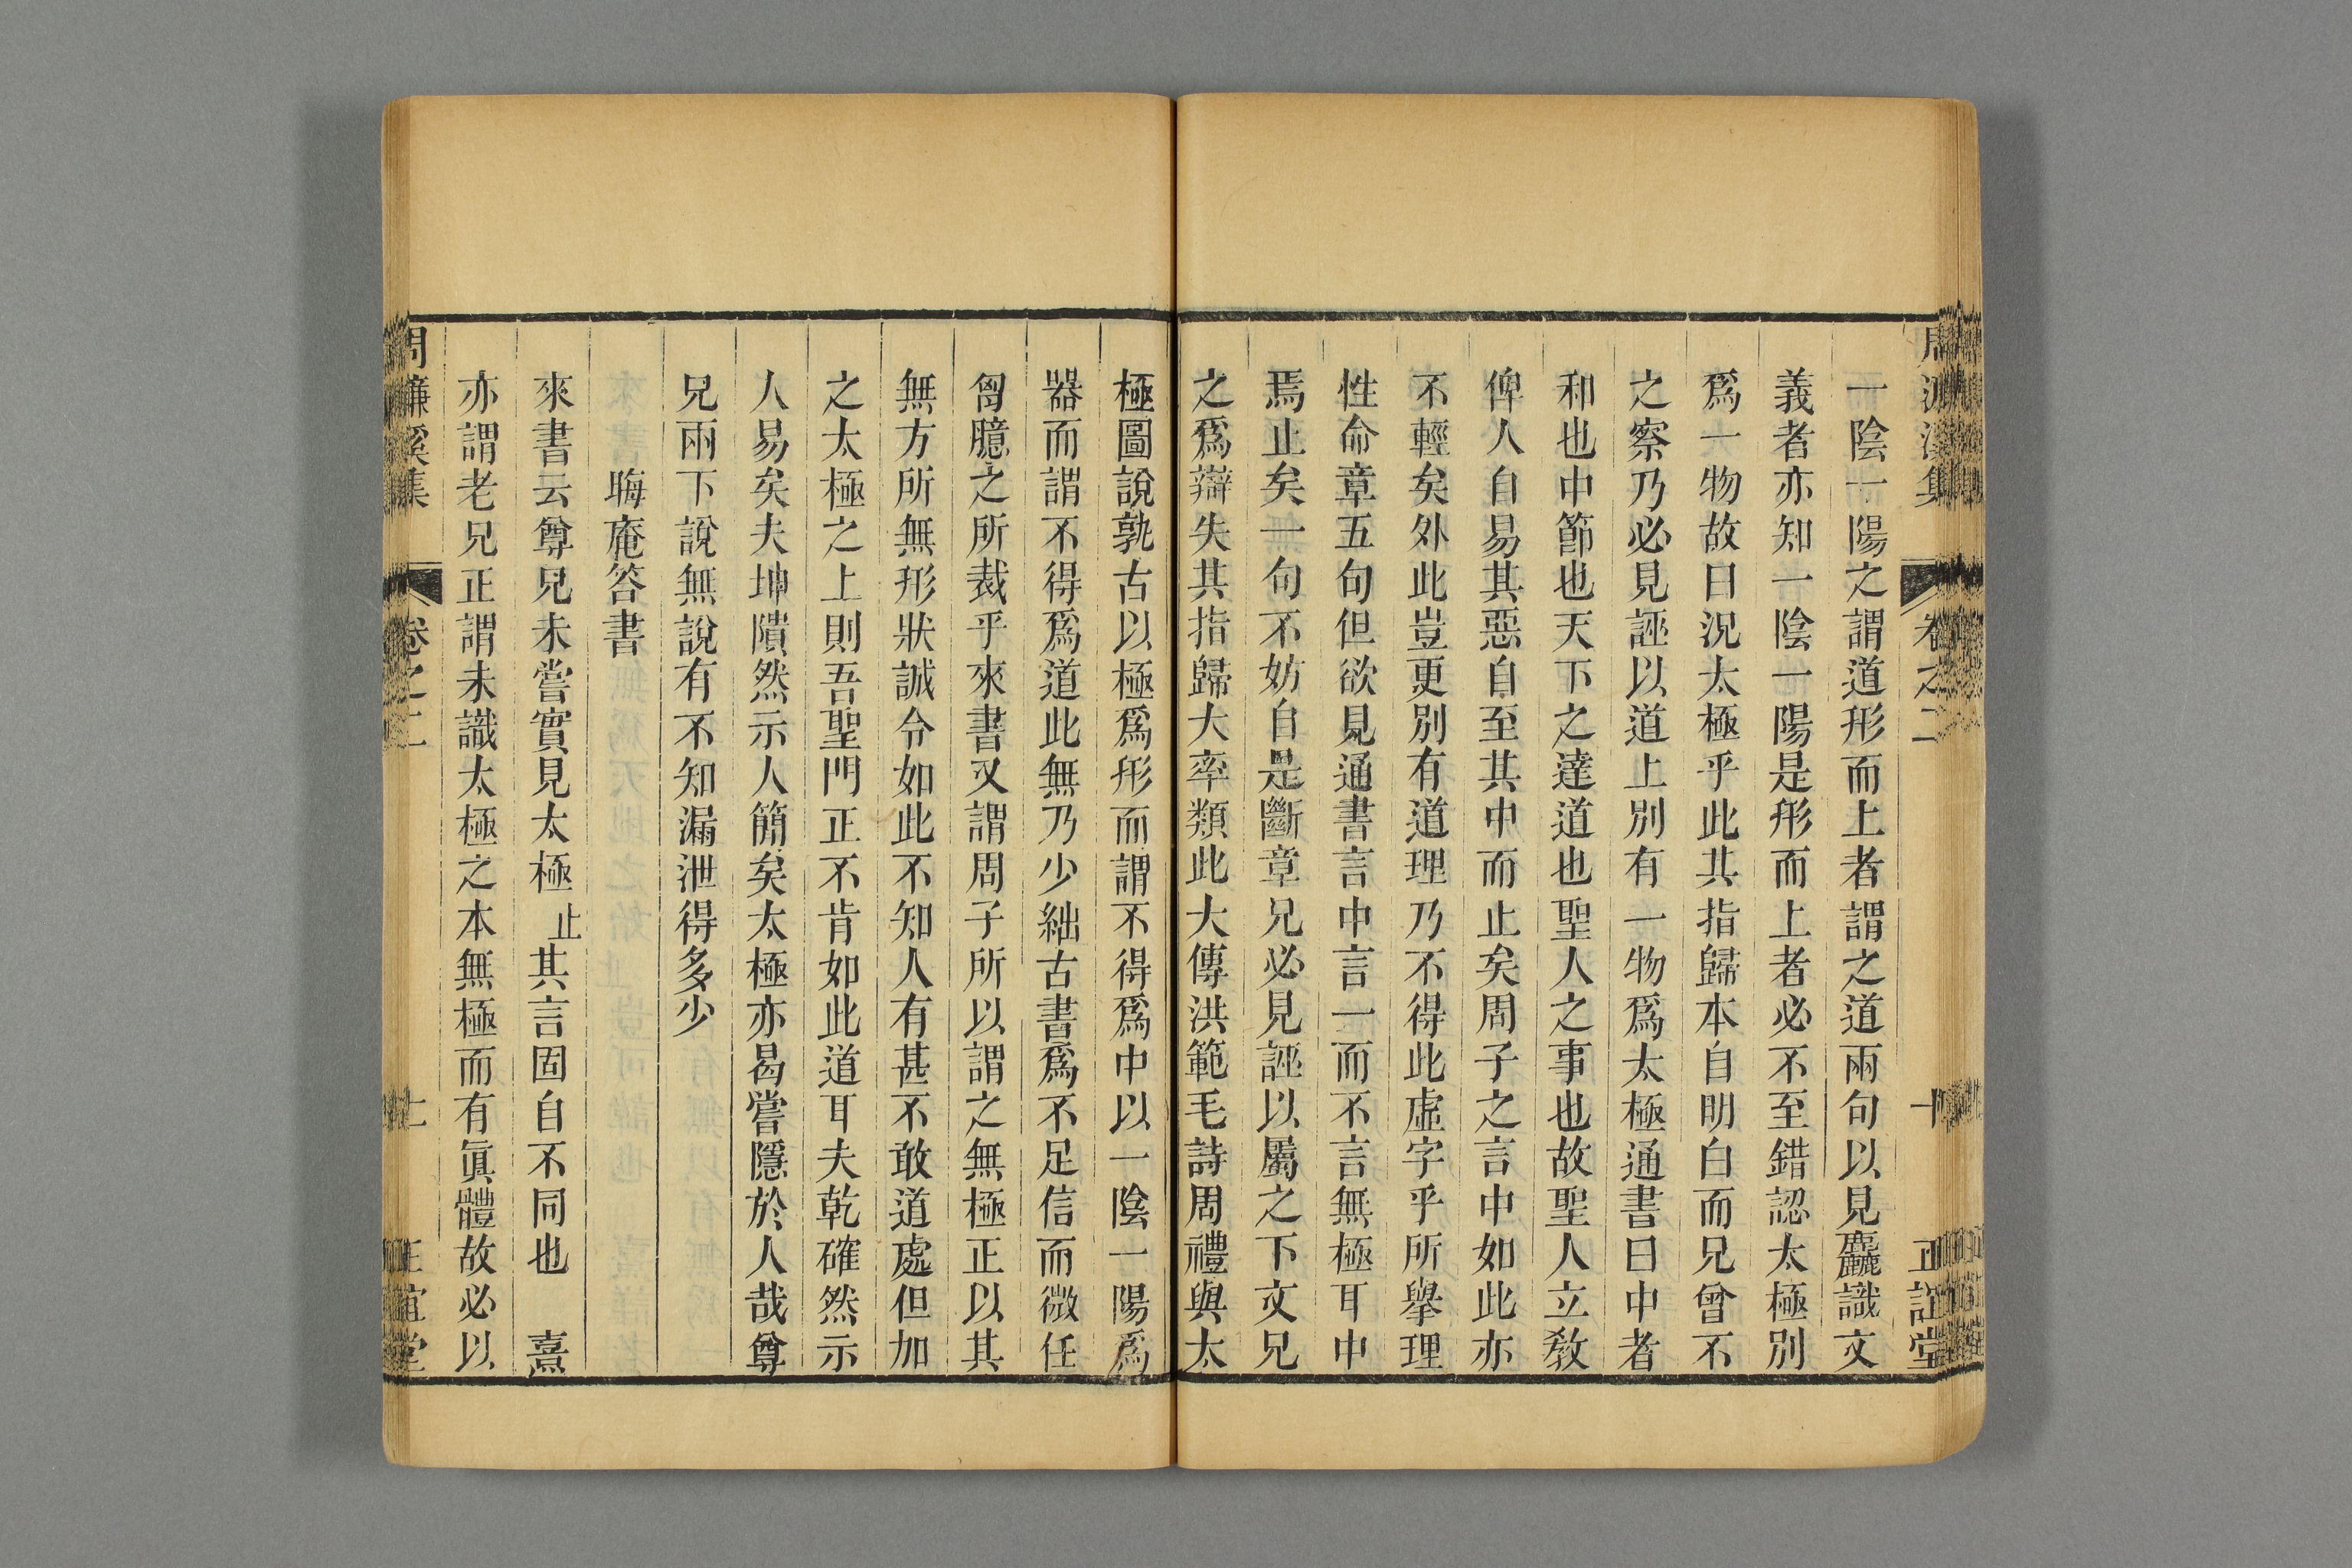 周濂溪集 卷之二 十 正誼堂
一陰一陽之謂道形而上者謂之道兩句以見麤識文
義者亦知一陰一陽是形而上者必不至錯認太極別
爲一物故曰況太極乎此其指歸本自明白而兄曾不
之察乃必見誣以道上別有一物爲太極通書曰中者
和也中節也天下之達道也聖人之事也故聖人立教
俾人自易其惡自至其中而止矣周子之言中如此亦
不輕矣外此豈更別有道理乃不得此虛字乎所舉理
性命章五句但欲見通書言中言一而不言無極耳中
焉止矣一句不妨自是斷章兄必見誣以屬之下文兄
之爲辯失其指歸大率類此大傳洪範毛詩周禮與太
極圖說孰古以極爲形而謂不得爲中以一陰一陽爲
器而謂不得爲道此無乃少絀古書爲不足信而微任
胷臆之所裁乎來書又謂周子所以謂之無極正以其
無方所無形狀誠令如此不知人有甚不敢道處但加
之太極之上則吾聖門正不肯如此道耳夫乾確然示
人易矣夫坤隤然示人簡矣太極亦曷嘗隱於人哉尊
兄兩下說無說有不知漏泄得多少
晦庵答書
來書云尊兄未嘗實見太極止其言固自不同也 熹
亦謂老兄正謂未識太極之本無極而有眞體故必以
周濂溪集 卷之二 十一 正誼堂